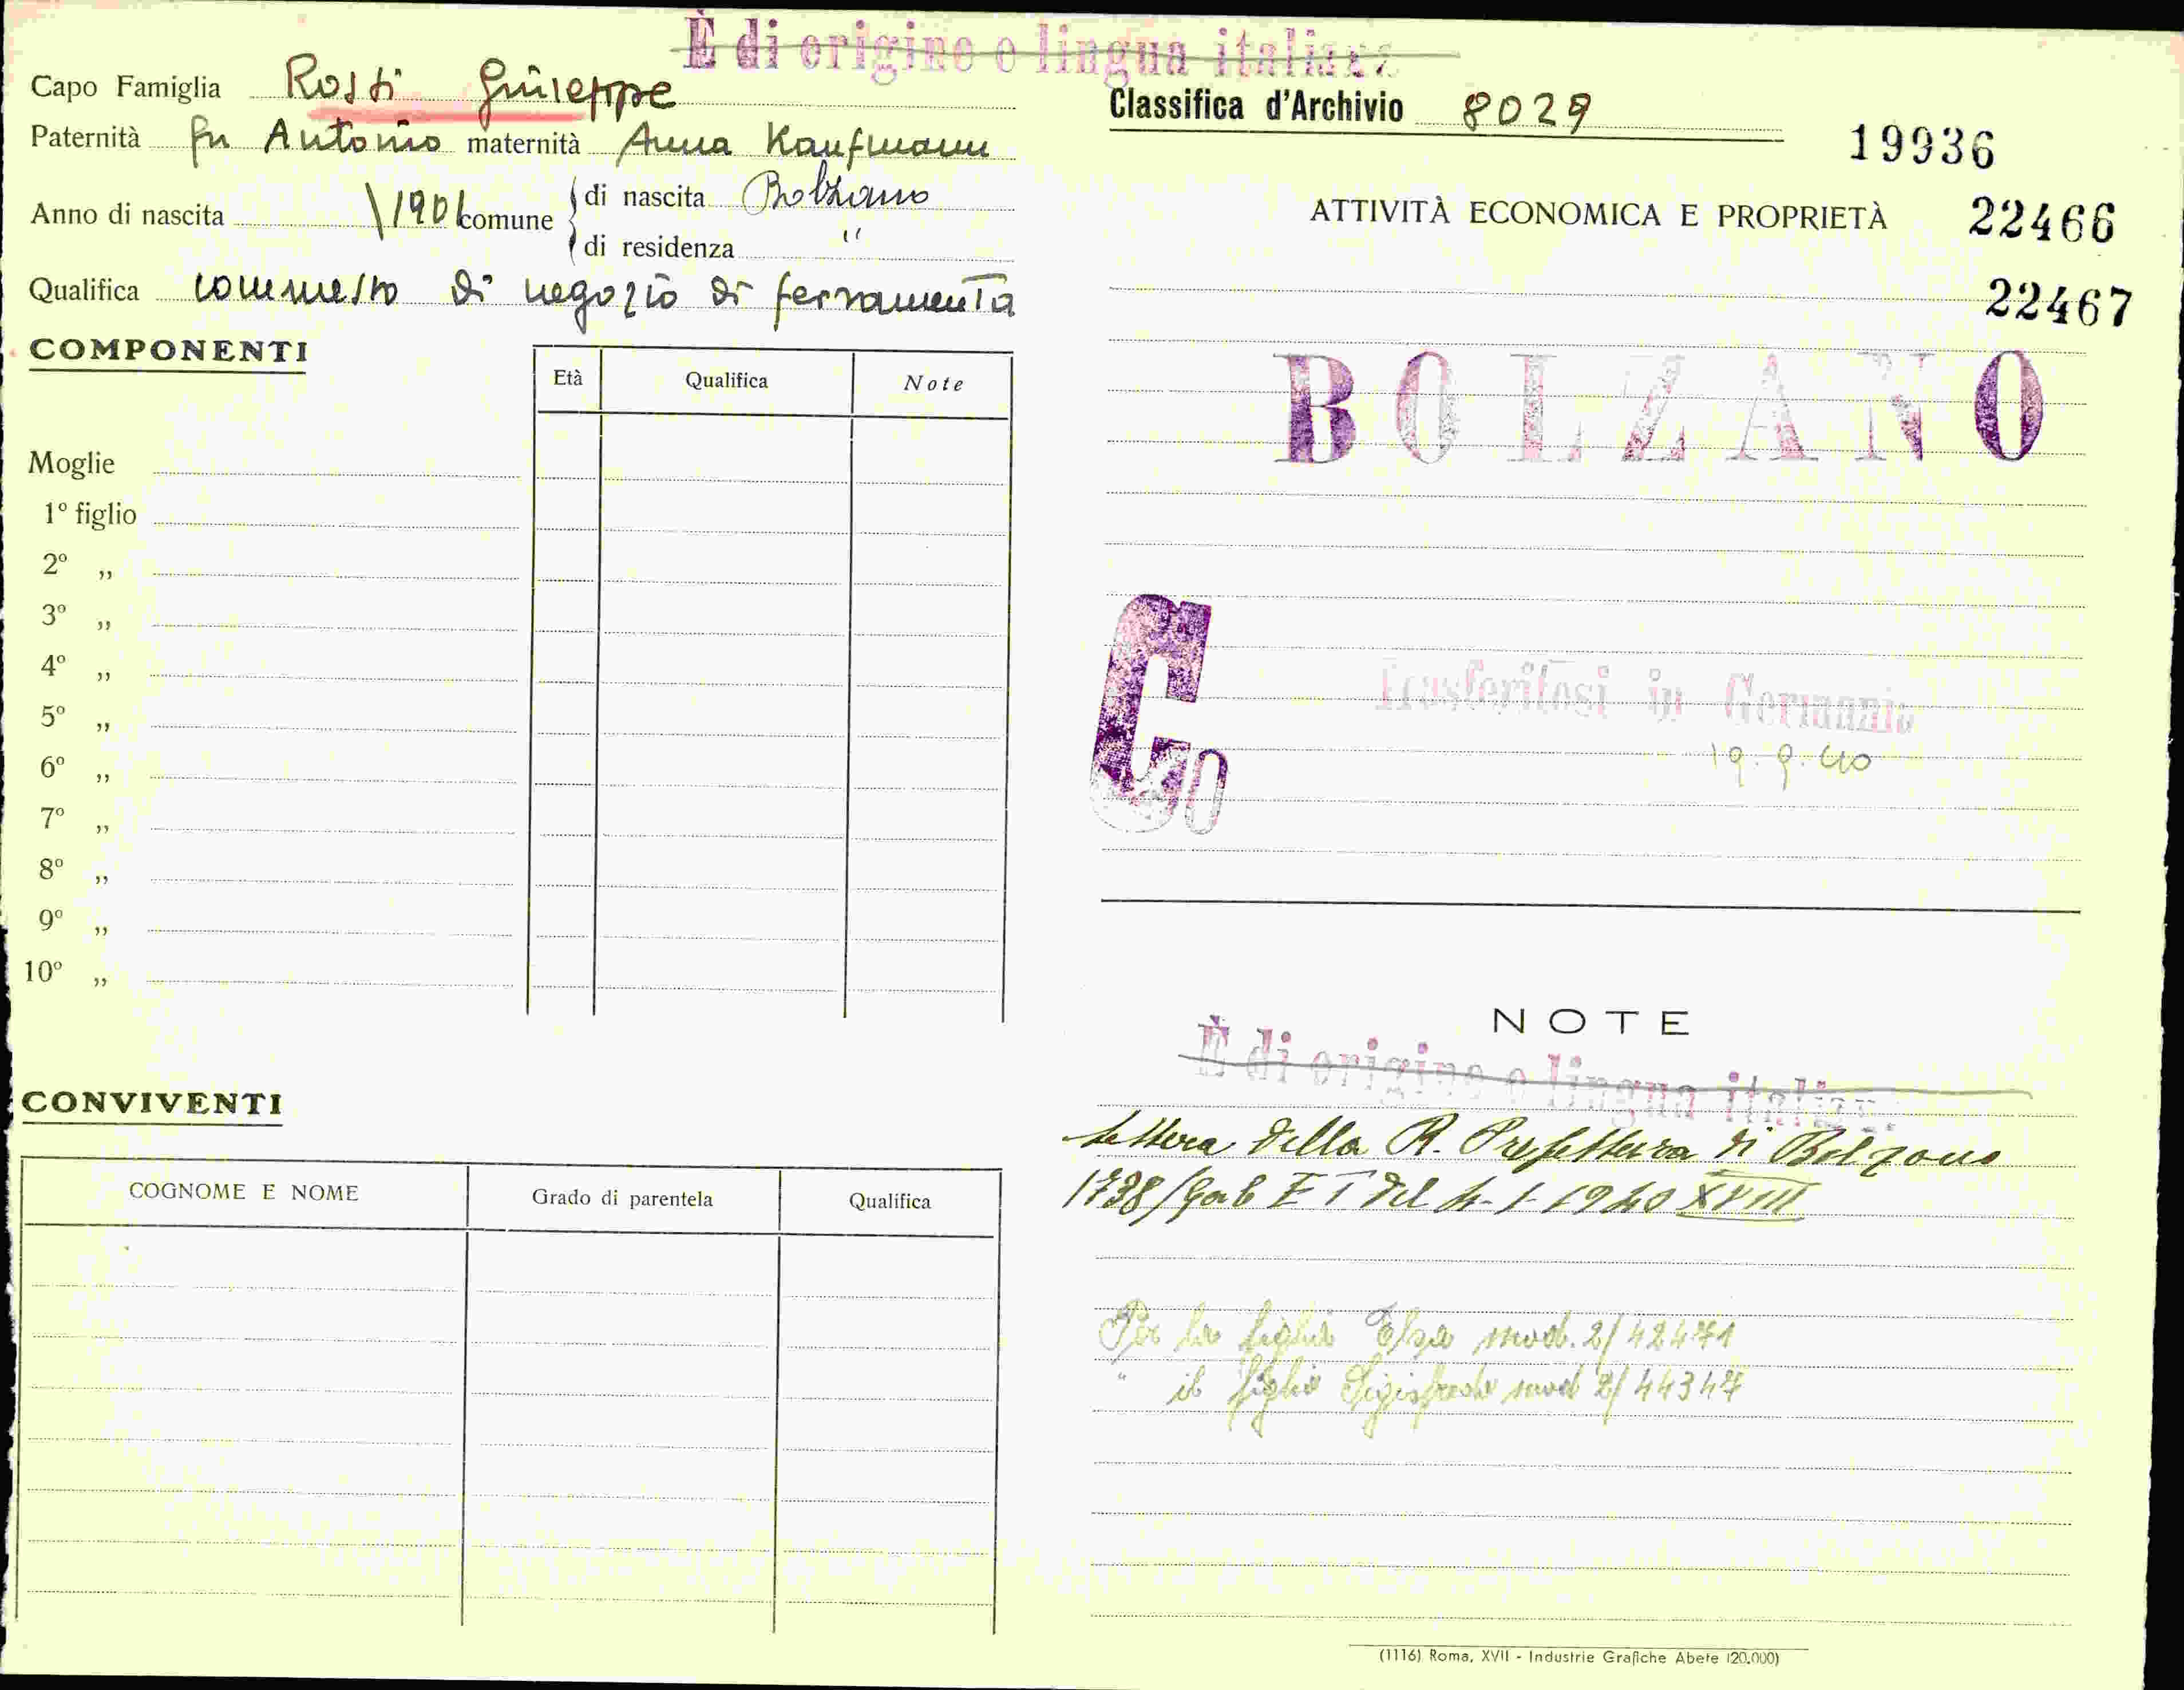 È di origine e lingua italiana
Capo Famiglia Rosti Giuseppe
Paternità fu Antonio maternità Anna Kaufmann
Anno di nascita 1901 comune di nascita Bolzano
di residenza "
Qualifica commesso di negozio di ferramenta
COMPONENTI
Età Qualifica Note
Moglie
1º figlio
2º „
3º „
4º „
5º „
6º „
7º „
8º „
9º „
10º „
CONVIVENTI
COGNOME E NOME Grado di parentela Qualifica
Classifica d'Archivio 8029
19936
ATTIVITÀ ECONOMICA E PROPRIETÀ 22466
22467
BOLZANO
Co
Trasferitosi in Germania
19.9.40
NOTE
È di origine e lingua italiana
Lettera della R. Prefettura di Bolzano
1738/Gab E T del 4-1-1940 XVIII
Per la figlia Elsa mod. 2/42471
" il figlio Sigisfredo mod 2/44347
(1116) Roma, XVII - Industrie Grafiche Abete (20.000)